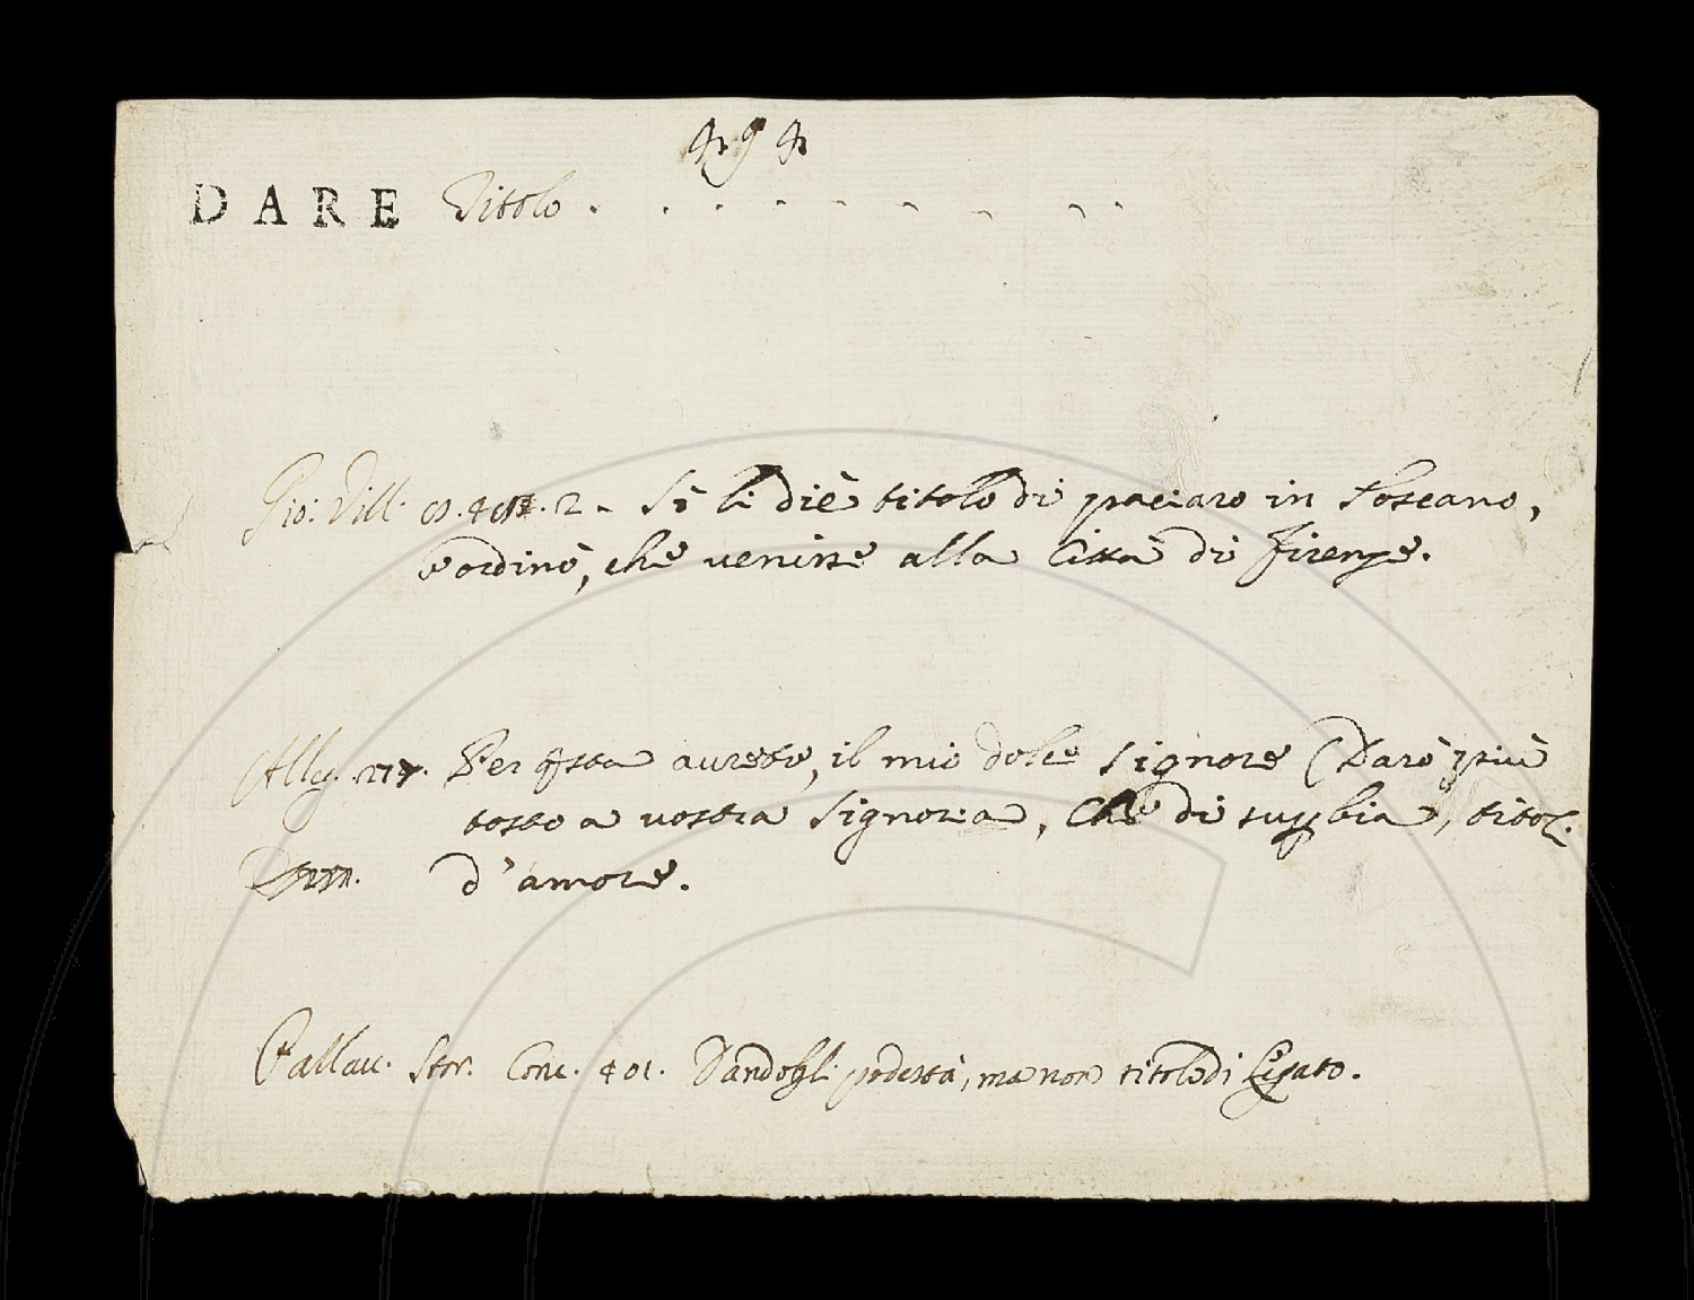 494
DARE Titolo . . . . . . . . . .
Gio: Vill. 8. 48. 2. Si li diè titolo di paciaro in Toscana,
e ordinò, che venisse alla Città di Firenze.
Alleg. 277. Per qsta avrete, il mio dolce Signore (Darò più
tosto a vostra Signoria, che di suppbia, titol.
d'amore.
Pallav. Stor. Conc. 401. Dandogli podestà, ma non titolo di Legato.